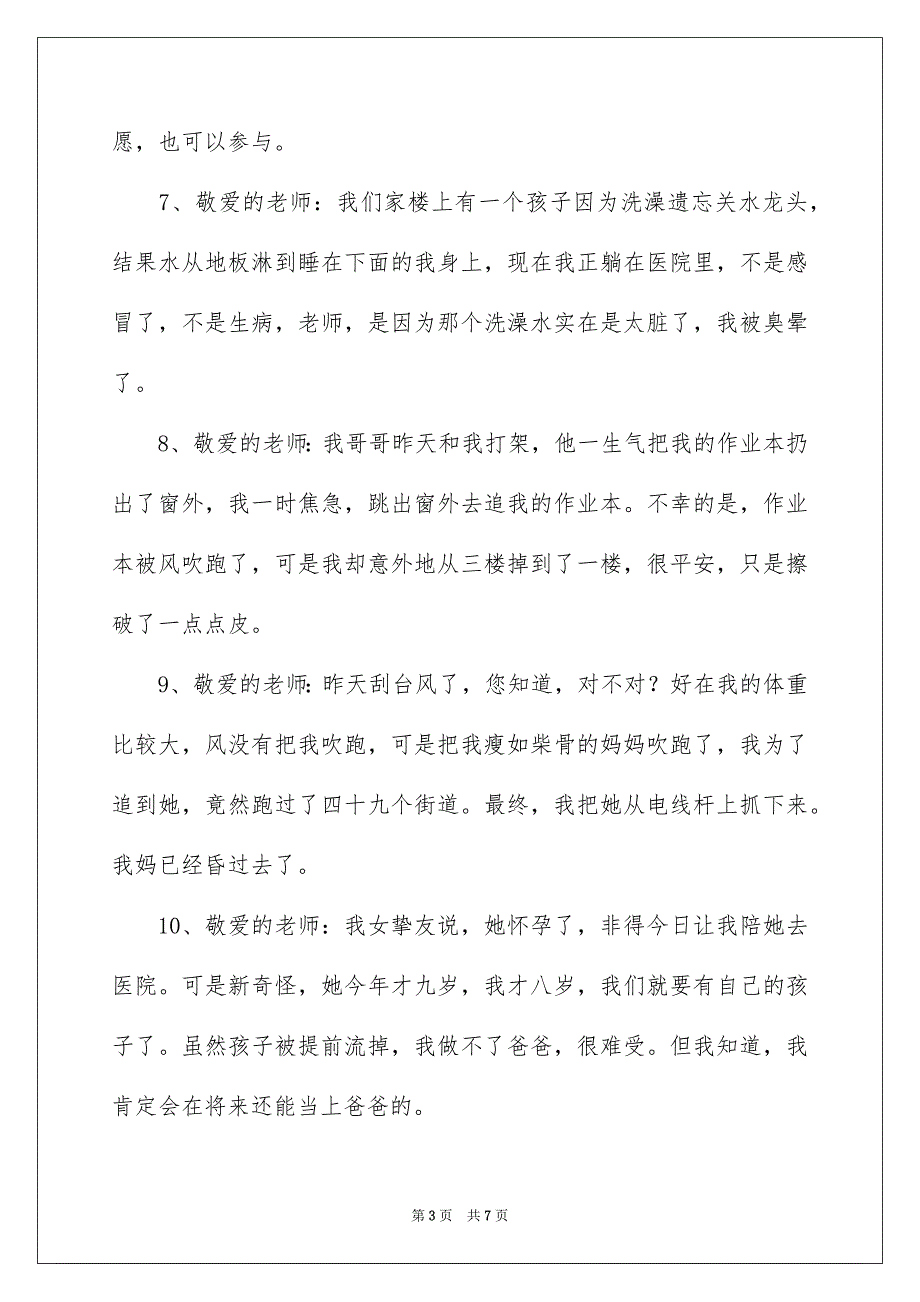 愿，也可以参与。
7、敬爱的老师：我们家楼上有一个孩子因为洗澡遗忘关水龙头，
结果水从地板淋到睡在下面的我身上，现在我正躺在医院里，不是感
冒了，不是生病，老师，是因为那个洗澡水实在是太脏了，我被臭晕
了。
8、敬爱的老师：我哥哥昨天和我打架，他一生气把我的作业本扔
出了窗外，我一时焦急，跳出窗外去追我的作业本。不幸的是，作业
本被风吹跑了，可是我却意外地从三楼掉到了一楼，很平安，只是擦
破了一点点皮。
9、敬爱的老师：昨天刮台风了，您知道，对不对？好在我的体重
比较大，风没有把我吹跑，可是把我瘦如柴骨的妈妈吹跑了，我为了
追到她，竟然跑过了四十九个街道。最终，我把她从电线杆上抓下来。
我妈已经昏过去了。
10、敬爱的老师：我女挚友说，她怀孕了，非得今日让我陪她去
医院。可是新奇怪，她今年才九岁，我才八岁，我们就要有自己的孩
子了。虽然孩子被提前流掉，我做不了爸爸，很难受。但我知道，我
肯定会在将来还能当上爸爸的。
第 3 页 共 7 页